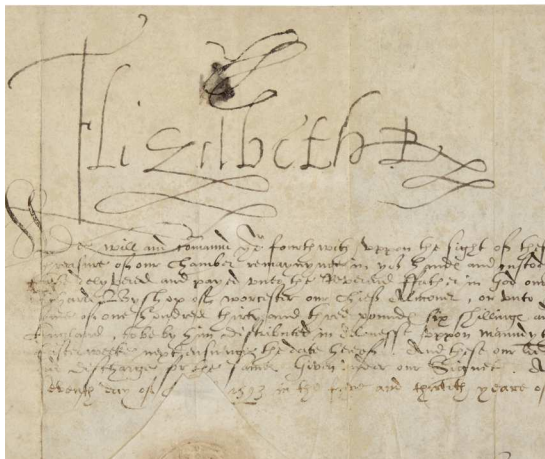 Elizabeth R
We will and comaund you fourthwith uppon the sight of thes
treasure of our Chamber remayning in yor hands and custod
delyvered and payed unto the Reverend ffather in God our
Byshop of worcester our chief Almoner, or unto
of one hundred thirty and three pounds six shillings a
England, to be by him distributed in uppon maundy
next ensuinge the date hereof. And these our
discharge for the same Given under our Signet
day of 1593 in the five and thirtith yeare of